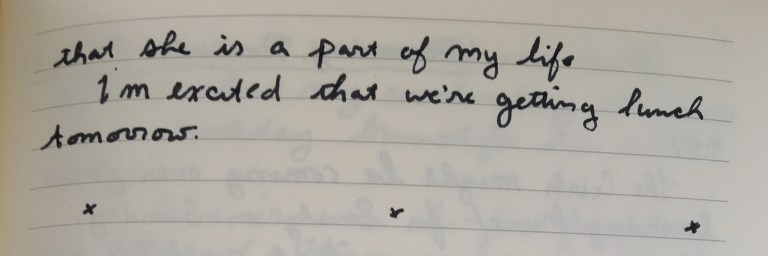 that she is a part of my life
I'm excited that we're getting lunch
tomorrow.
x x x